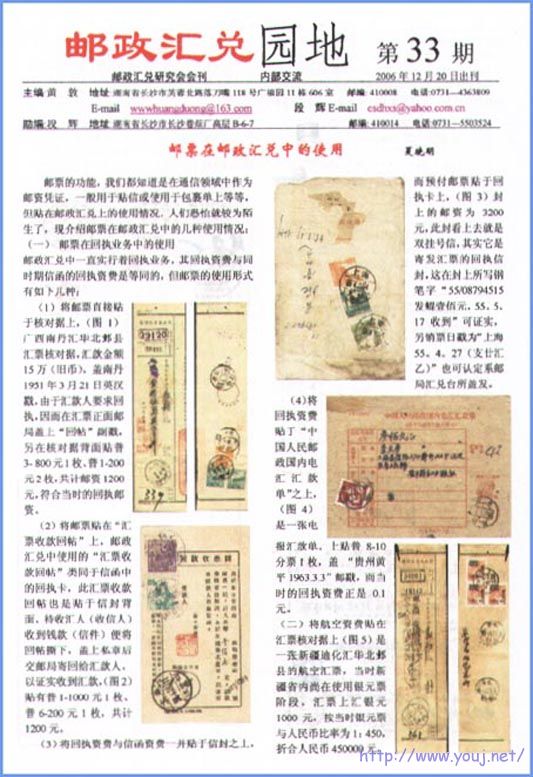 邮政汇兑园地 第33期
邮政汇兑研究会会刊 内部交流 2006年12月20日出刊
主编:黄 敦 地址:湖南省长沙市芙蓉北路落刀嘴118号广福园11栋606室 邮编: 410008 电话:0731—4363809
E-mail wwwhuangdun@163.com 段 辉E-mail csdhxx@yahoo.com.cn
助编:段 辉 地址:湖南省长沙市长沙卷烟厂高层B-6-7 邮编: 410014 电话:0731—5503524
邮票在邮政汇兑中的使用 夏晓明
邮票的功能，我们都知道是在通信领域中作为
邮资凭证，一般用于贴信或使用于包裹单上等等，
但贴在邮政汇兑上的使用情况，人们恐怕就较为陌
生了，现介绍邮票在邮政汇兑中的几种使用情况:
(一) 邮票在回执业务中的使用
邮政汇兑中一直实行着回执业务，其回执资费与同
时期信函的回执资费是等同的，但邮票的使用形式
有如下几种:
(1) 将邮票直接贴
于核对据上，(图1)
广西南丹汇华北邺县
汇票核对据，汇款金额
15万(旧币)，盖南丹
1951年3月21日英汉
戳，由于汇款人要求回
执，因而在汇票正面邮
局盖上“回帖”副戳，
另在核对据背面贴普
3- 800元1枚,普1-200
元2枚，共计邮资1200
元，符合当时的回执邮
资。
(2) 将邮票贴在“汇
票收款回帖”上，邮政
汇兑中使用的“汇票收
款回帖”类同于信函中
的回执卡，此汇票收款
回帖也是贴于信封背
面，待收汇人(收信人)
收到钱款(信件)便将
回帖撕下，盖上私章后
交邮局寄回给汇款人，
以证实收到汇款,(图2)
贴有普1-1000元1枚，
普6-200元1枚，共计
1200元。
(3) 将回执资费与信函资费一并贴于信封之上，
而预付邮票贴于回
执卡上，(图3) 封
上的邮资为3200
元，此封看上去就是
双挂号信，其实它是
寄发汇票的回执信
封，这在封上所写钢
笔字“55/08794515
发鲲壹佰元，55。5。
17收到”可证实，
另销票日戳为“上海
55。4。27 (支廿汇
乙)”也可认定系邮
局汇兑台所盖发。
(4) 将
回执资费
贴于“中
国人民邮
政国内电
汇汇款
单”之上，
(图4)
是一张电
报汇放单，上贴普8-10
分票1枚，盖“贵州黄
平1963.3.3”邮戳，而当
时的回执资费正是0.1
元。
(二) 将航空资费贴在
汇票核对据上(图5)是
一张新疆迪化汇华北邺
县的航空汇票，当时新
疆省内尚在使用银元票
阶段，汇票上汇银元
1000元，按当时银元票
与人民币比率为1: 450,
折合人民币450000元，
http://www.youj.net/